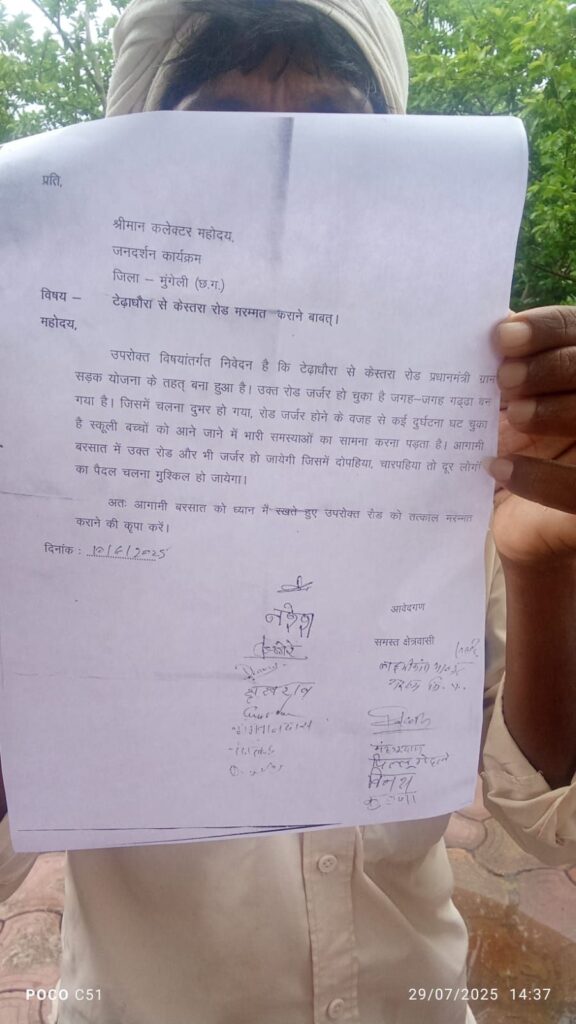 प्रति,
श्रीमान कलेक्टर महोदय,
जनदर्शन कार्यक्रम
जिला – मुंगेली (छ.ग.)
विषय – टेढ़ाधौरा से केस्तरा रोड मरम्मत कराने बाबत्।
महोदय,
उपरोक्त विषयांतर्गत निवेदन है कि टेढ़ाधौरा से केस्तरा रोड प्रधानमंत्री ग्राम
सड़क योजना के तहत् बना हुआ है। उक्त रोड जर्जर हो चुका है जगह–जगह गढ्ढा बन
गया है। जिसमें चलना दुभर हो गया, रोड जर्जर होने के वजह से कई दुर्घटना घट चुका
है स्कूली बच्चों को आने जाने में भारी समस्याओं का सामना करना पड़ता है। आगामी
बरसात में उक्त रोड और भी जर्जर हो जायेगी जिसमें दोपहिया, चारपहिया तो दूर लोगों
का पैदल चलना मुश्किल हो जायेगा।
अतः आगामी बरसात को ध्यान में रखते हुए उपरोक्त रोड को तत्काल मरम्मत
कराने की कृपा करें।
दिनांक : 10/6/2025
आवेदगण
समस्त क्षेत्रवासी
नरेश
विनय
कृष्णा
POCO C51
29/07/2025 14:37